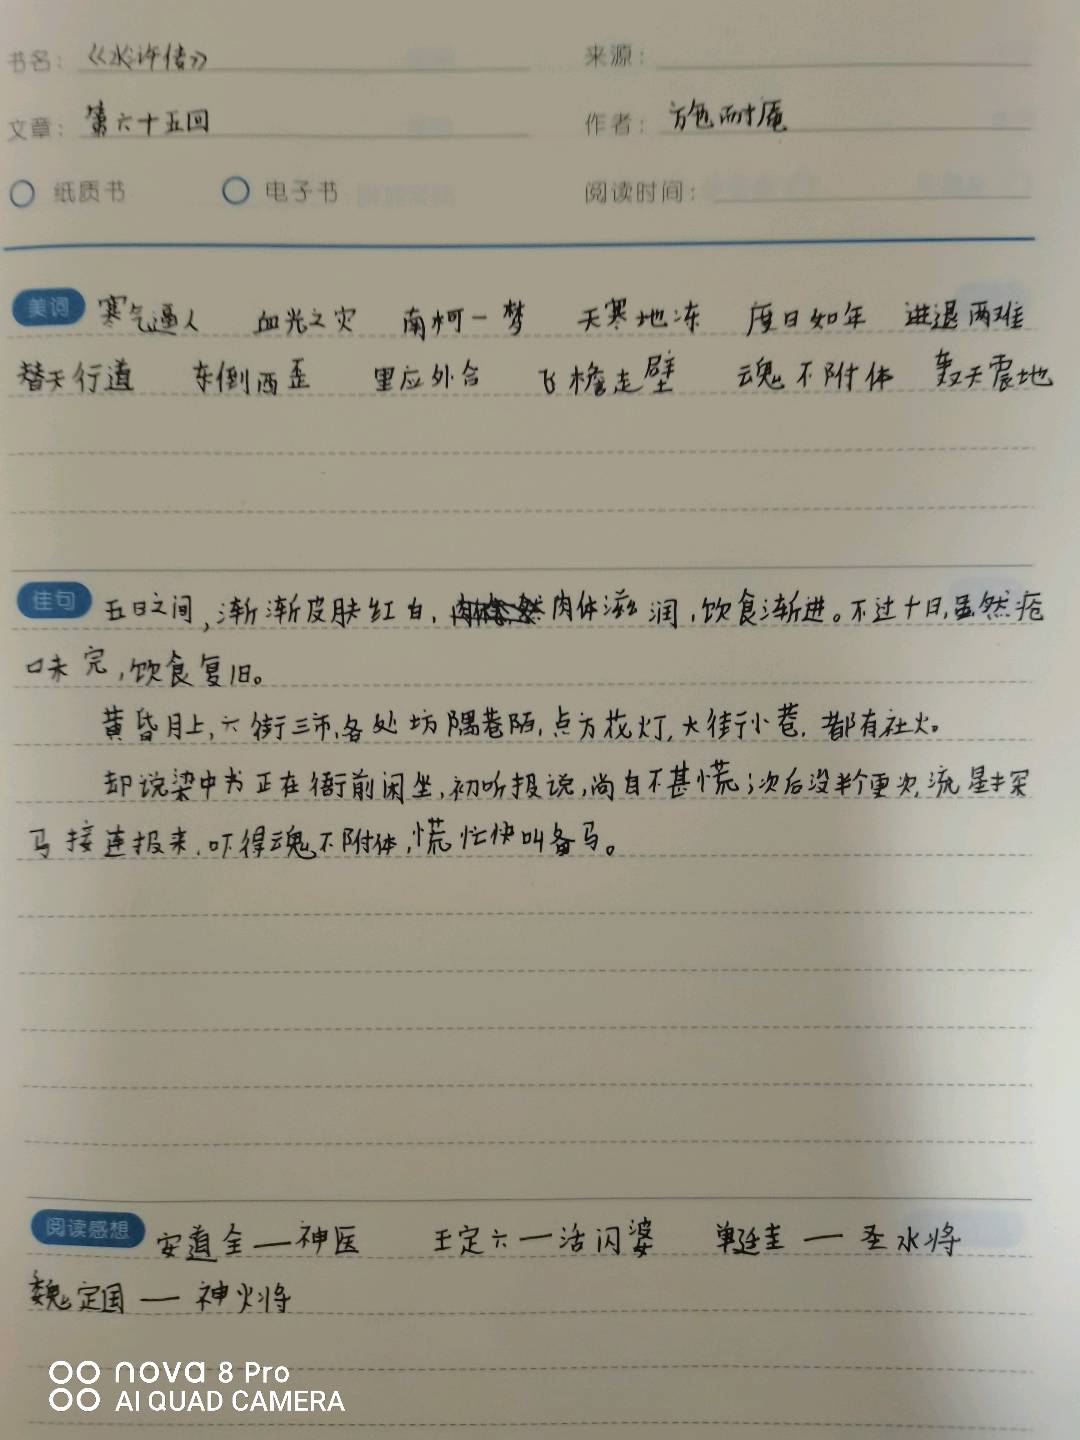 书名： 《水浒传》 来源：
文章： 第六十五回 作者： 施耐庵
纸质书 电子书 阅读时间：
美词 寒气逼人 血光之灾 南柯一梦 天寒地冻 度日如年 进退两难
替天行道 东倒西歪 里应外合 飞檐走壁 魂不附体 轰天震地
佳句 五日之间，渐渐皮肤红白，肉体滋润，饮食渐进。不过十日，虽然疮
口未完，饮食复旧。
黄昏月上，六街三市，各处坊隅巷陌，点方花灯，大街小巷，都有社火。
却说梁中书正在衙前闲坐，初听报说，尚自不甚慌；次后没半个更次，流星探
马接连报来，吓得魂不附体，慌忙快叫备马。
阅读感想 安道全—神医 王定六—活闪婆 单廷圭—圣水将
魏定国—神火将
nova 8 Pro
AI QUAD CAMERA